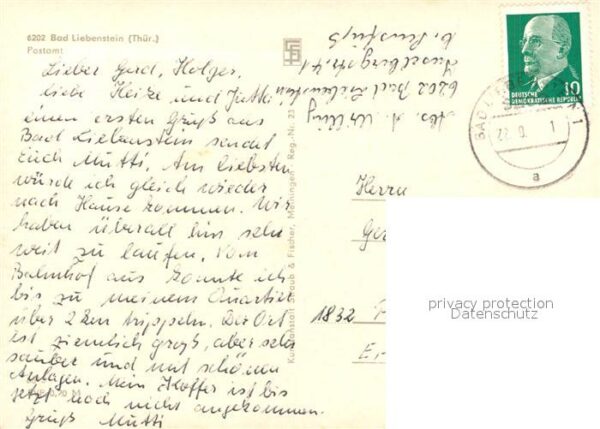 6202 Bad Liebenstein (Thür.)
Postamt
Lieber Gerd, Holger,
liebe Heize und Jutta,
einen ersten Gruß aus
Bad Liebenstein sendet
Euch Mutti. Am liebsten
würde ich gleich wieder
nach Hause kommen. Wir
haben überall hin sehr
weit zu laufen. Vom
Bahnhof aus konnte ich
bis zu meinem Quartier
über 2 km trippeln. Der Ort
ist ziemlich groß, aber sehr
sauber und mit schönen
Anlagen. Mein Koffer ist bis
jetzt noch nicht angekommen.
Gruß Mutti
Kunstanstalt Straub & Fischer, Meiningen Reg.-Nr. 23
Abs. A.
6202 Bad Liebenstein
Inselbergstr. 41
b.
DEUTSCHE
DEMOKRATISCHE REPUBLIK
10
BAD LIEBENSTEIN 1
a
Herrn
Ger
1832
privacy protection
Datenschutz